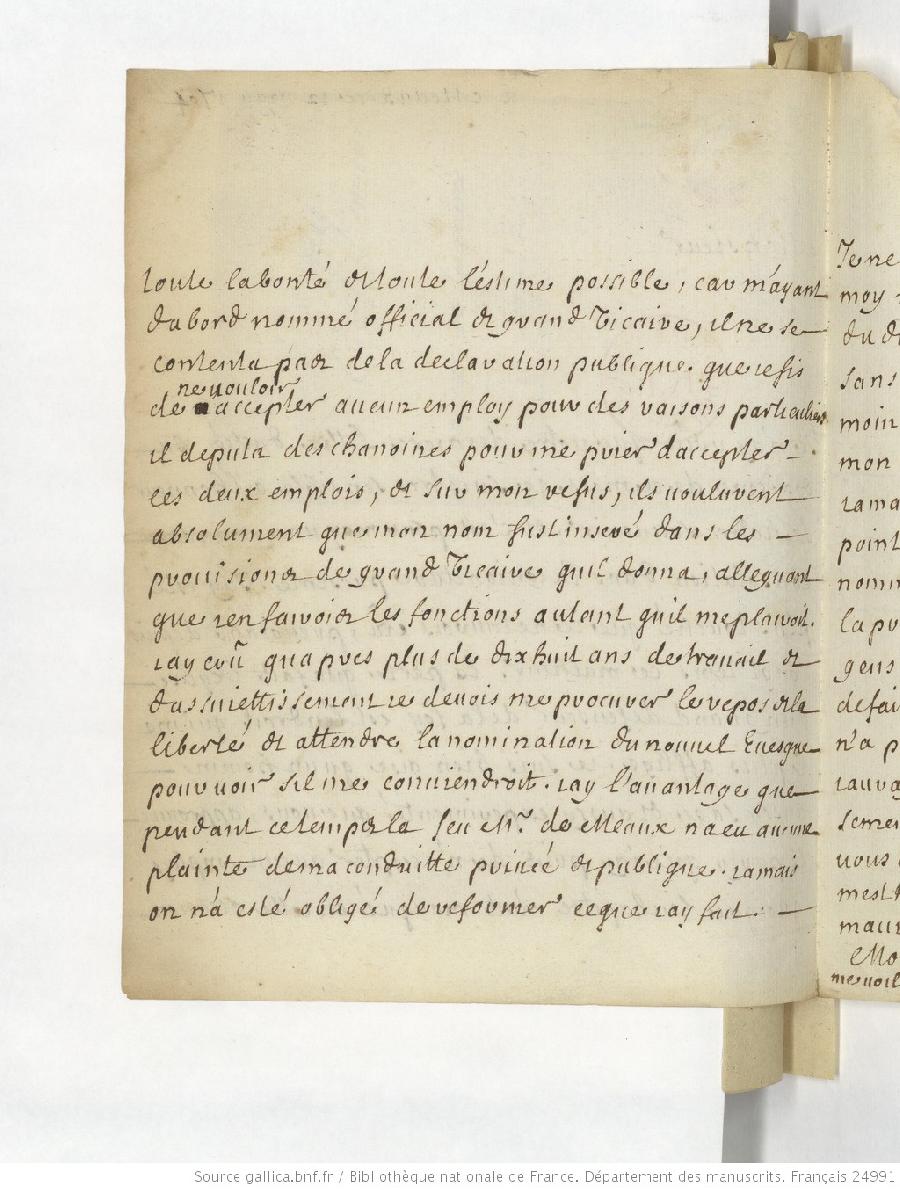 toute la bonté et toute l'estime possible, car m'ayant
dabord nommé official et grand Vicaire, il ne se
contenta pas de la declaration publique que je fis
ne vouloir
de accepter aucun employ pour des raisons particulieres
il deputa des chanoines pour me prier d'accepter
ces deux emplois, et sur mon refus, ils voulurent
absolument que mon nom fust inseré dans les
provisions de grand Vicaire quil donna, alleguant
que j'en ferois les fonctions autant quil me plairoit.
jay crû quapres plus de dixhuit ans de travail et
dassujettissement je devois me procurer le repos et la
liberté et attendre la nomination du nouvel Evesque
pour voir sil me conviendroit. jay l'avantage que
pendant ce temps la feu Mr. de Meaux na eu aucune
plainte de ma conduitte privée et publique. jamais
on n'a esté obligé de reformer ce que jay fait.
Je ne
moy
du
sans
moin
mon
jama
point
nomm
la pr
gens
de fai
n'a p
jauva
semen
vous
mest
maur
Mo
me voil
Source gallica.bnf.fr / Bibliothèque nationale de France. Département des manuscrits. Français 24991